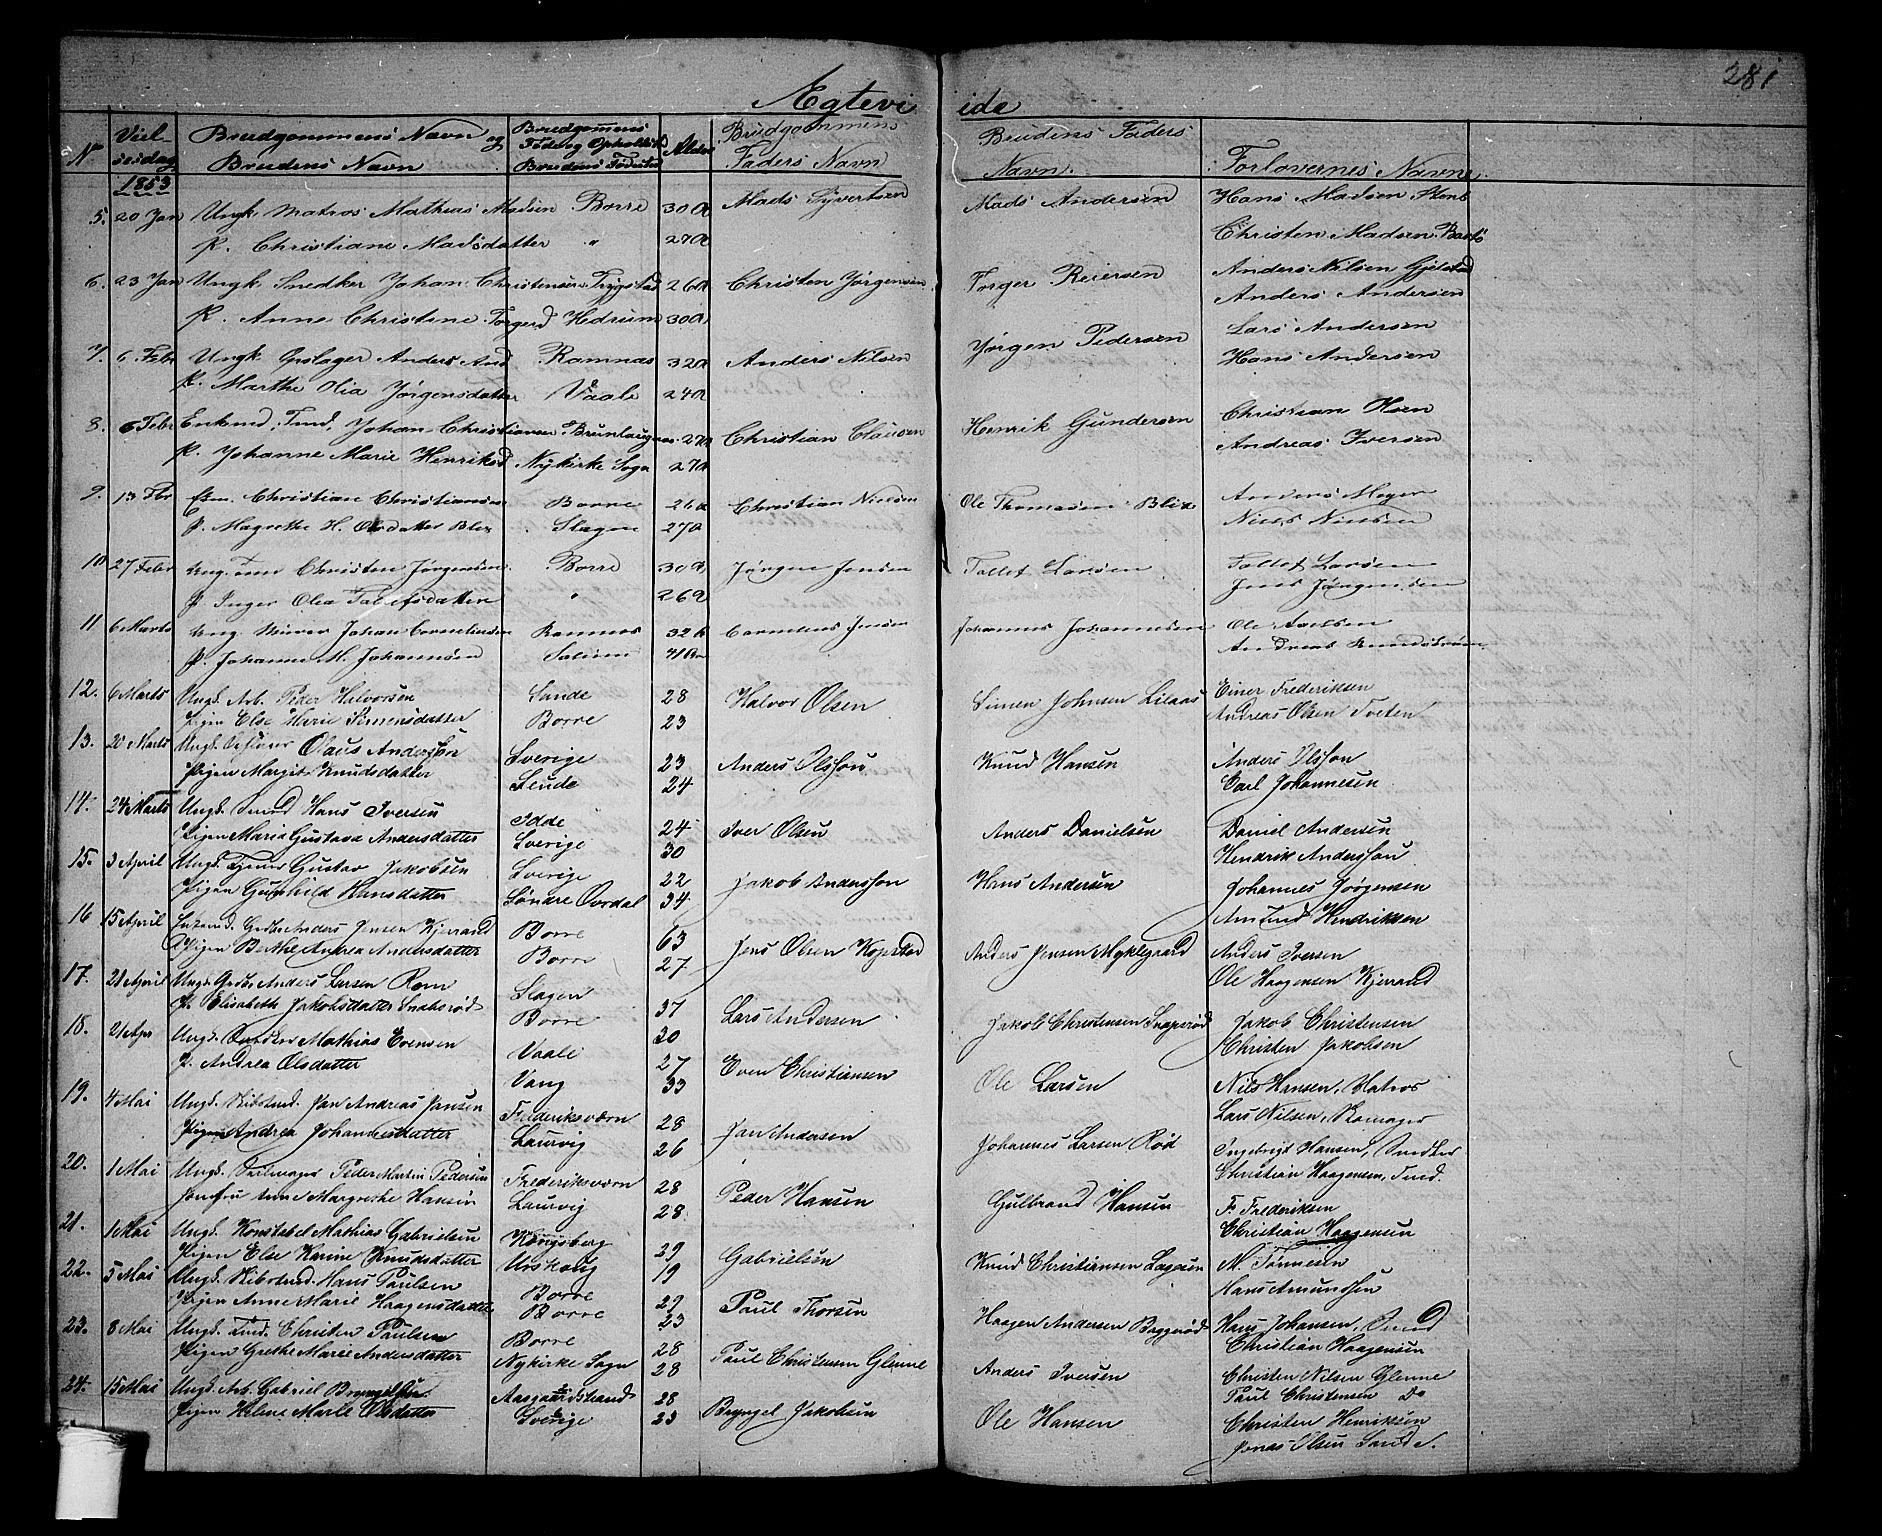 281
Ægtevi ide
No Viel sesdag Brudgommens Navn og Brudens Navn Brudgommens Fødeog Opholdsst Brudens Fødested Alder Brudgommens Faders Navn Brudens Faders Navn. Forlovernes Navne.
1853
5. 20 Jan Ungk. Matros Mathias Madsen Borre 30 A Mads Syvertsen Mads Andersen Hans Madsen
P. Christiane Madsdatter " 27 A Christen Madsen
6. 23 Jan Ungk Snedker Johan Christensen 26 A Christen Jørgensen Torger Reiersen Anders Nilsen
P. Anne Christine Torgerd Hedrum 30 A Anders Andersen
7. 6 Febr Ungk Opslager Anders And Ramnæs 32 A Anders Nilsen Jørgen Pedersen Lars Andersen
P. Marthe Olia Jørgensdatter Vaale 24 A Hans Andersen
8. 6 Febr Enkmd. Tmd. Johan Christiansen Brunlaugnæs 27 A Christian Clausen Henrik Gundersen Christian Horn
P. Johanne Marie Henriksd Nykirke Sogn 27 A Andreas Iversen
9. 13 Fbr Christian Christiansen Borre 26 A Christian Nielsen Ole Thomasen Blix Anders Meyer
P. Magrethe H. Olsdatter Blix Slagen 27 A Niels Nielsen
10 27 Febr Ung. Christen Jørgensen Borre 30 A Jørgen Jensen Tollef Larsen Tollef Larsen
P Inger Olea Tollefsdatter " 26 A Jens Jørgensen
11 6 Marts Ung. Murer Johan Corneliussen Ramnes 32 A Cornelius Jensen Johannes Johannesen Ole
P. Johanne M. Johannsen 41 Andreas
12. 6 Marts Ungk. Arb. Peder Halvorsen Sande 28 Halvor Olsen Simen Johnsen Lilaas Einer Frederiksen
Pigen Else Marie Simensdatter Borre 23 Andreas Olsen Tveten
13. 20 Marts Ungk. Olaus Andersson Sverige 23 Anders Olsson Knud Hansen Anders Olsson
Pigen Margit Knudsdatter 24 Carl Johannesen
14. 24 Marts Ungk. Hans Iversen Idde 24 Iver Olsen Anders Danielsen Daniel Andersen
Pigen Maria Gustava Andersdatter Sverige 30 Hendrik Andersson
15. 3 April Ungk. Tjener Gustav Jakobsen Sverige 22 Jakob Andersson Hans Andersen Johannes Jørgensen
Pigen Gunhild Hansdatter Søndre Ourdal 34 Amund Hendriksen
16 15 April Enkemd. Grdbr Anders Jensen Kjerrand Borre 63 Jens Olsen Kopstad Anders Jensen Myklegaard Anders Iversen
Pigen Berthe Andrea Andersdatter Borre 27 Ole Haagensen Kjerrand
17. 21 April Ungk. Grdbr Anders Larsen Rom Slagen 37 Lars Andersen Jakob Christensen Snapsrød Jakob Christensen
P. Elisabeth Jakobsdatter Snabsrød Borre 30 Christen Jakobsen
18. 21 Apr Ungk. Snedker Mathias Evensen Vaale 27 Even Christiansen Ole Larsen Nils Hansen, Matros
P. Andrea Olsdatter Vang 33 Lars Nilsen, Skomager
19. 4 Mai Ungk. Skibstmd. Jan Andreas Jansen Frederiksværn 28 Jan Andersen Johannes Larsen Rød Ingebrigt Hansen, Snedker
Pigen Andrea Johannesdatter Laurvig 26 Christian Haagensen, Tmd.
20. 1 Mai Ungk. Seilmager Peder Martin Pedersen Frederiksværn 28 Peder Hansen Gulbrand Hansen F. Frederiksen
Jomfru Anne Margrethe Hansen Laurvig 28 Christian Haagensen
21. 1 Mai Ungk. Konstabel Mathias Gabrielsen Kongsberg 29 Gabrielsen Knud Christiansen M. Tønnesen
Pigen Else Karine Knudsdatter Urskoug 19 Hans Amundsen
22. 5 Mai Ungk. Skibstmd. Hans Paulsen Borre 29 Paul Thorsen Haagen Andersen Baggerød Hans Johansen,
Pigen Anne Marie Haagensdatter Borre 23 Christian Haagensen
23. 8 Mai Ungk. Tmd. Christen Paulsen Borre 28 Paul Christensen Glenne Anders Iversen Christen Nilsen Glenne
Pigen Grethe Marie Andersdatter Nykirke Sogn 28 Paul Christensen Do
24. 15 Mai Ungk. Arb. Gabriel Bryngelsen Aasgaardstrand 28 Bryngel Jakobsen Ole Hansen Christen Henriksen
Pigen Helene Marie Olsdatter Sverige 23 Jonas Olsen